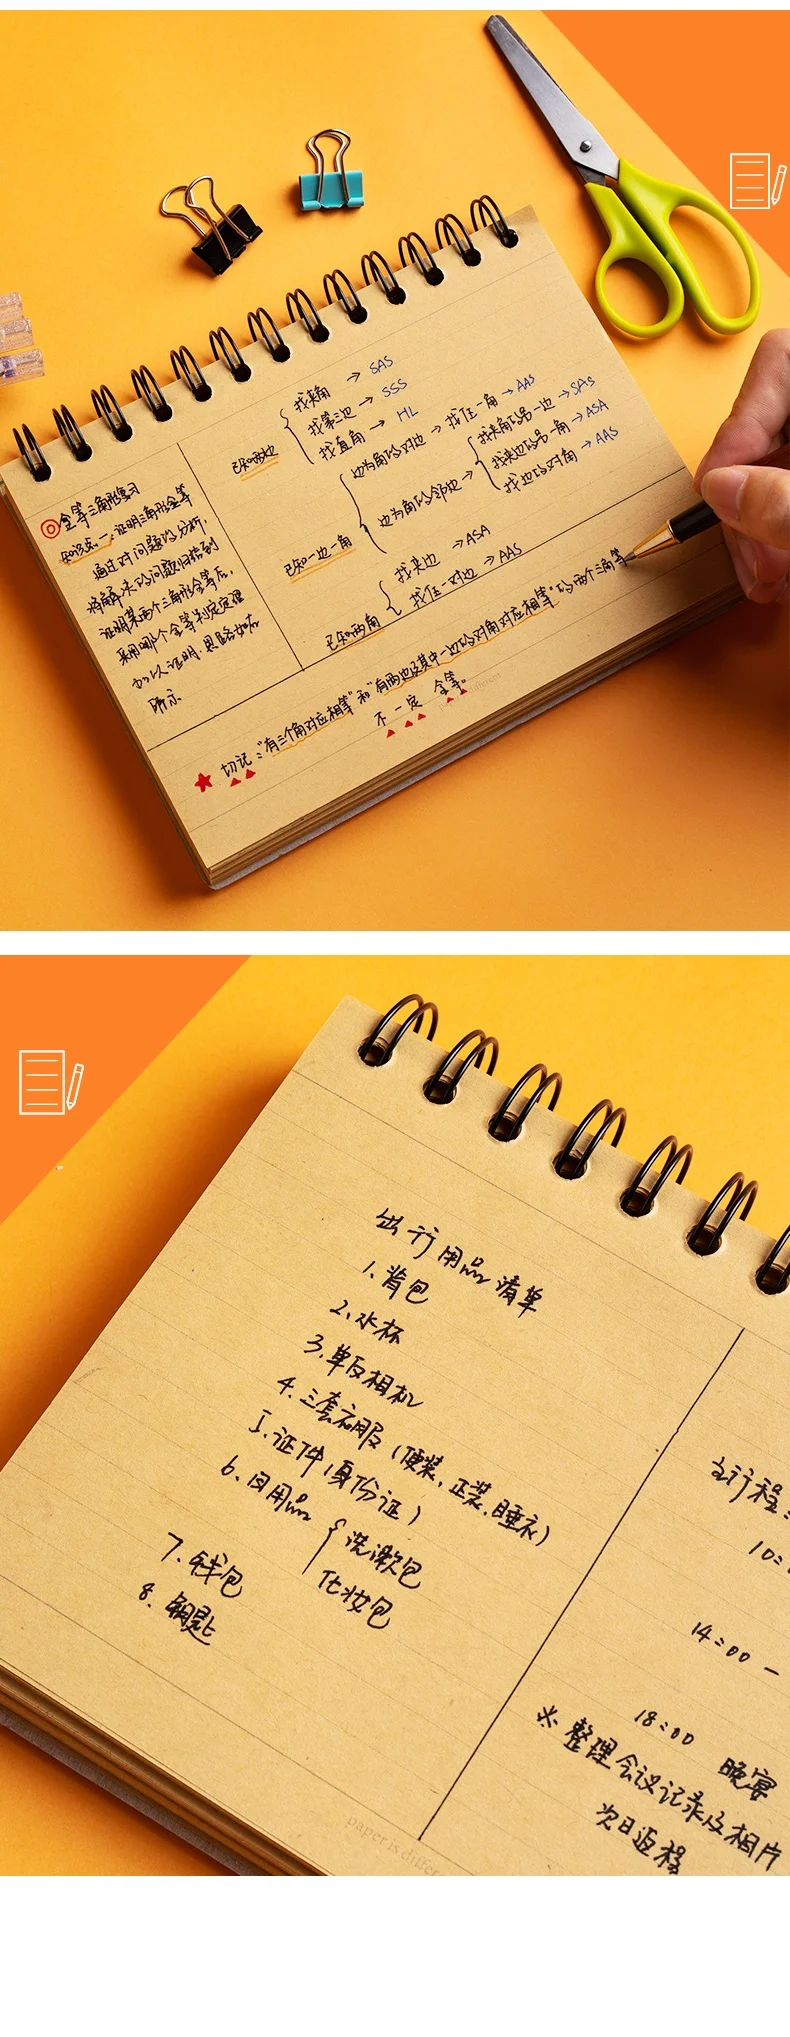 ◎全等三角形复习
知识点一:证明三角形全等
通过对问题的分析,
将解决的问题归结到
证明某两个三角形全等后,
采用哪个全等判定定理
加以证明,思路如右
所示
已知两边
找夹角 → SAS
找第三边 → SSS
找直角 → HL
已知一边一角
边为角的对边 → 找任一角 → AAS
边为角的邻边 →
找夹角的另一边 → SAS
找夹边的另一角 → ASA
找边的对角 → AAS
已知两角
找夹边 → ASA
找任一对边 → AAS
★ 切记:“有三个角对应相等”和“有两边及其中一边的对角对应相等”的两个三角等
不一定 全等。
出行用品清单
1. 背包
2. 水杯
3. 单反相机
4. 三套衣服(便装、正装、睡衣)
5. 证件(身份证)
6、日用品
洗漱包
化妆包
7. 钱包
8. 钥匙
行程:
10:
14:00 —
18:00 晚宴
※ 整理会议记录及相片
次日返程
paper is differ